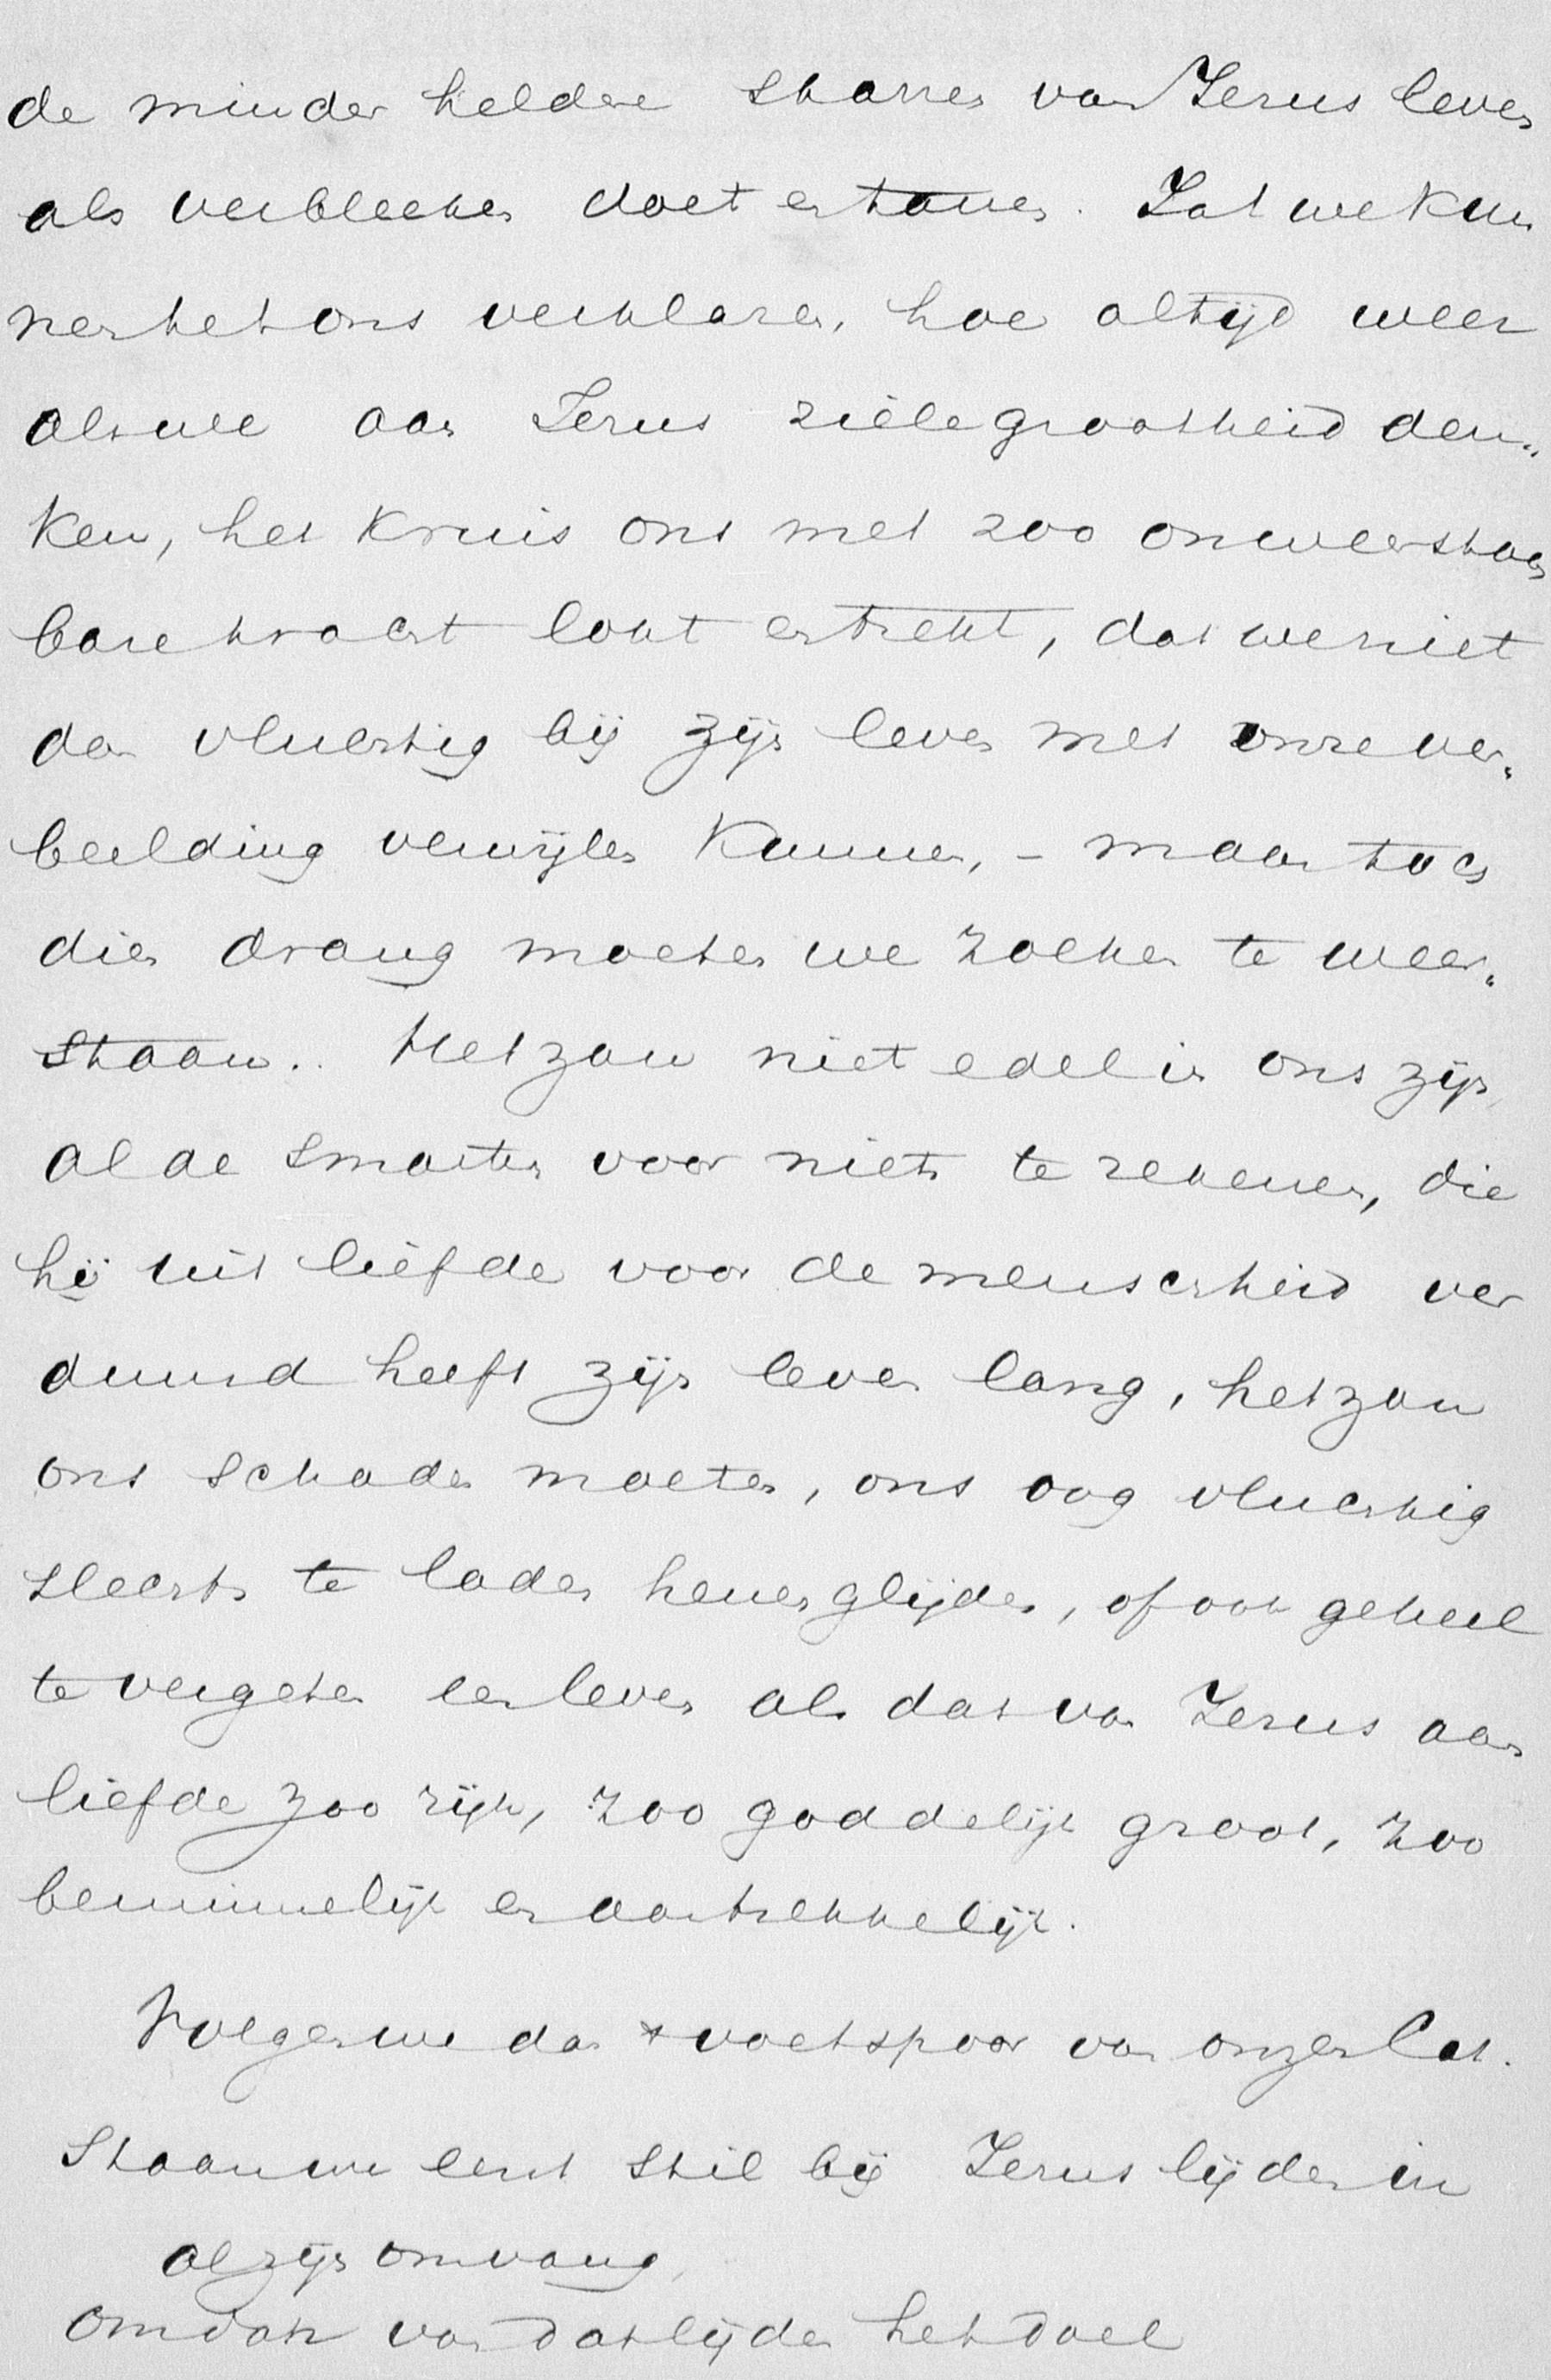 de minder heldere starren van Jezus leven
als verbleeken doet en tanen. Zat we kun
nen het ons verklaren, hoe altijd weer
als we aan Jezus zielegrootheid den„
ken, het kruis ons met zoo onweerstaan
bare kracht lokt en trekt, dat we niet
dan vluchtig bij zijn leven met onze ver„
beelding verwijlen kunnen, – maar toch
dien drang moeten we zoeken te weer„
staan.. Het zou niet edel in ons zijn,
al de smarten voor niets te rekenen, die
hij uit liefde voor de menscheid ver
duurd heeft zijn leven lang, het zou
ons schaden moeten, ons oog vluchtig
slechts te laden henenglijden, of ook geheel
te vergeten een leven als dat van Jezus aan
liefde zoo rijk, zoo goddelijk groot, zoo
beminnelijk en aantrekkelijk.
Volgen we dan 't voetspoor van onzen Cat.
Staan we eerst stil bij Jezus lijden in
al zijn omvang,
om dan van dat lijden het doel